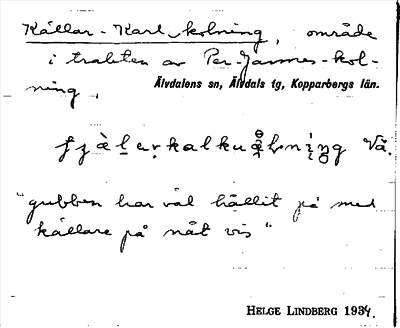 Källar-Karl-kolning, område
i trakten av Per-Jannes-kol-
ning,
Älvdalens sn, Älvdals tg, Kopparbergs län.
Vå.
"gubben har väl hållit på med
källare på nåt vis"
HELGE LINDBERG 1934.